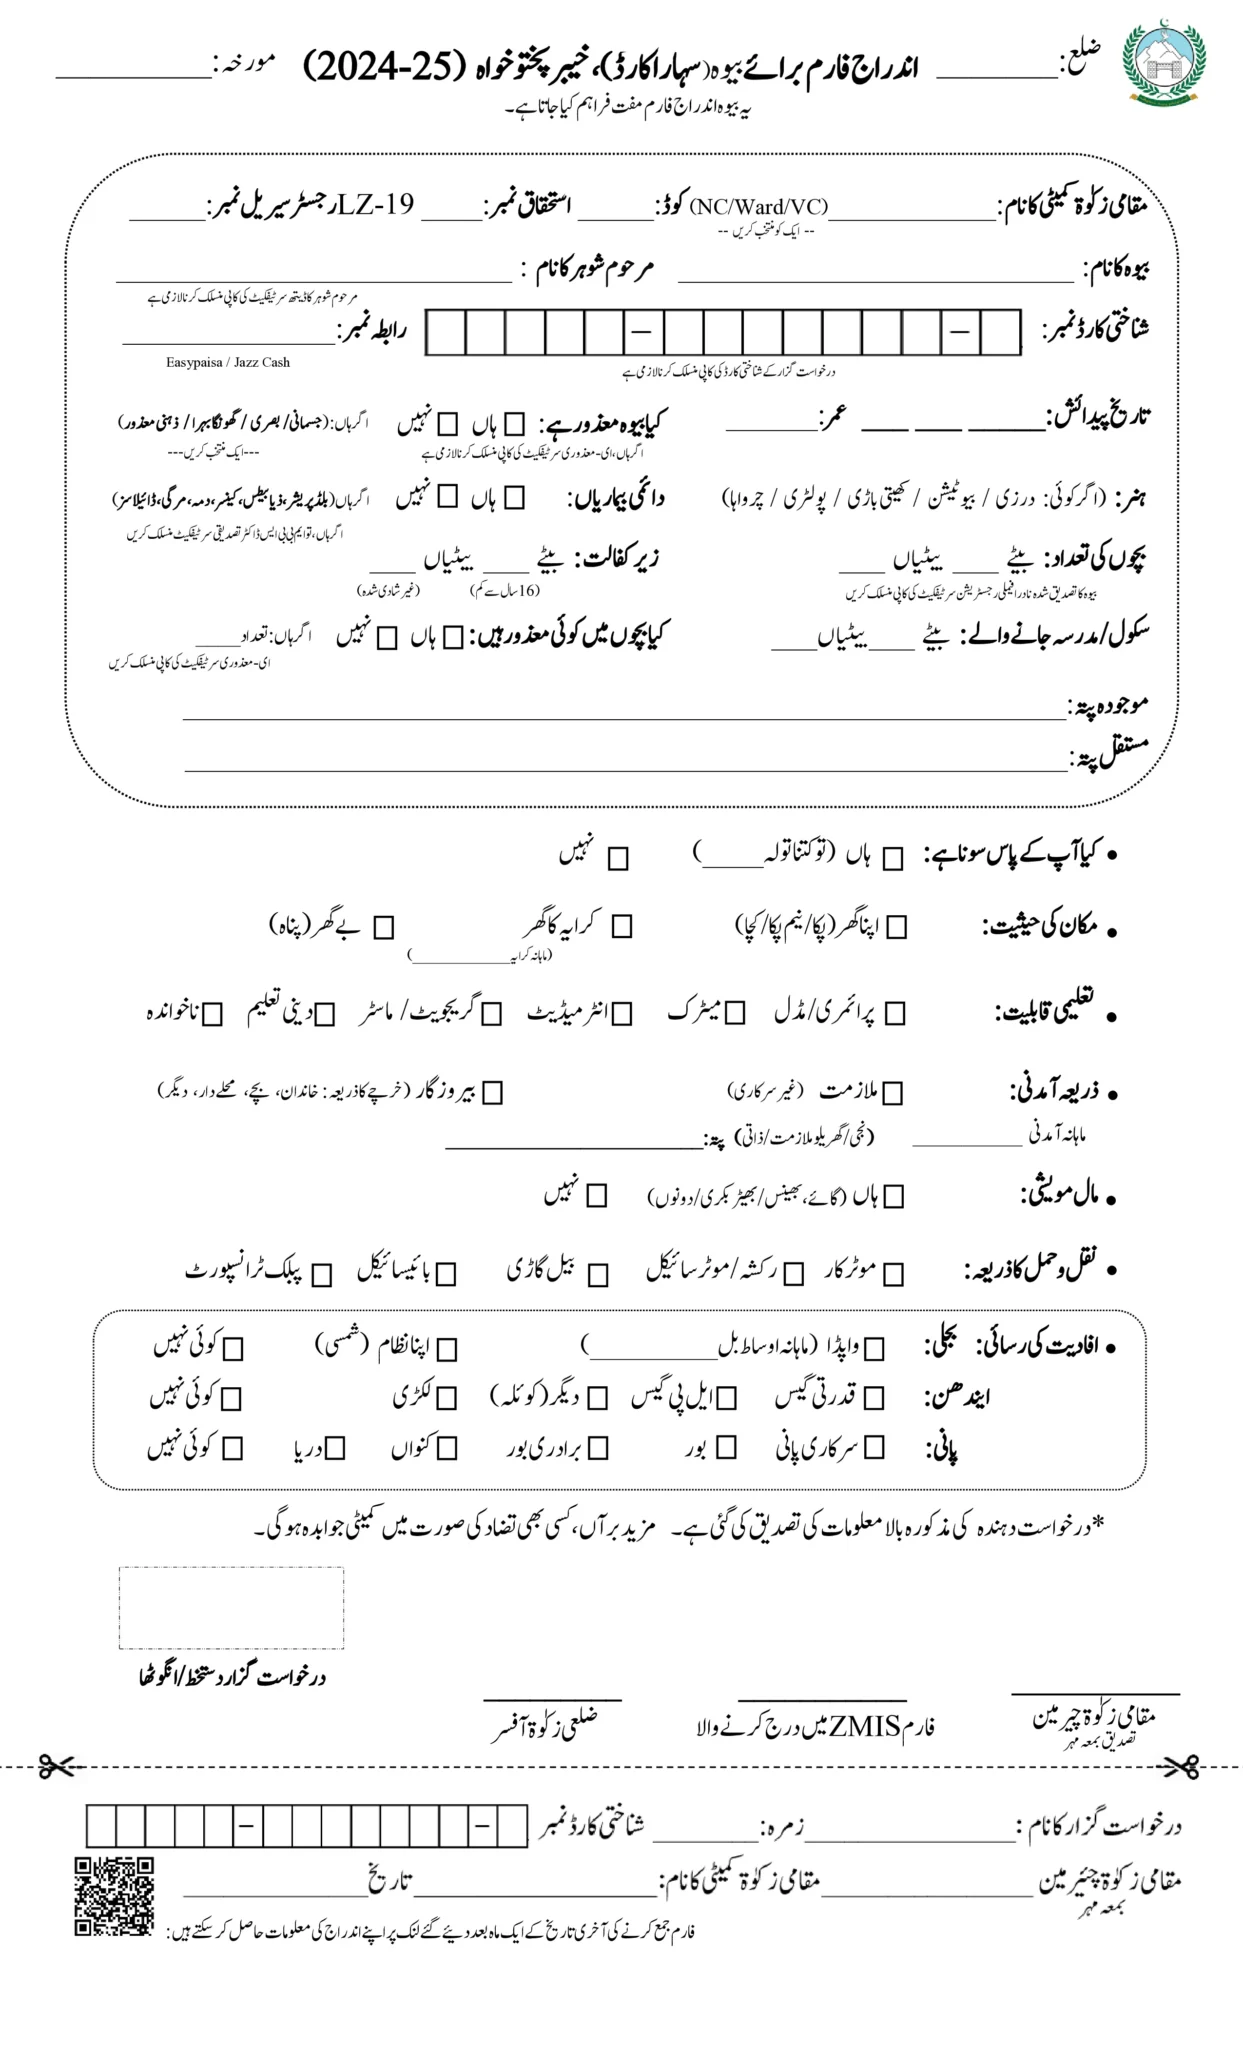 ضلع: ____________ اندراج فارم برائے بیوہ (سہارا کارڈ)، خیبر پختونخواہ (2024-25) مورخہ: ____________
یہ بیوہ اندراج فارم مفت فراہم کیا جاتا ہے۔
مقامی زکوٰۃ کمیٹی کا نام: ____________ (NC/Ward/VC) کوڈ: ______ استحقاق نمبر: ______ LZ-19 رجسٹر سیریل نمبر: ______
-- ایک کو منتخب کریں --
بیوہ کا نام: ____________ مرحوم شوہر کا نام : ____________
مرحوم شوہر کا ڈیتھ سرٹیفکیٹ کی کاپی منسلک کرنا لازمی ہے
شناختی کارڈ نمبر: – – رابطہ نمبر: ____________
درخواست گزار کے شناختی کارڈ کی کاپی منسلک کرنا لازمی ہے Easypaisa / Jazz Cash
تاریخ پیدائش: ______ ____ ____ عمر: ________ کیا بیوہ معذور ہے: □ ہاں □ نہیں اگر ہاں: (جسمانی / بصری / گھونگا بہرا / ذہنی معذور)
اگر ہاں، ای-معذوری سرٹیفکیٹ کی کاپی منسلک کرنا لازمی ہے ---ایک منتخب کریں---
ہنر: (اگر کوئی: درزی / بیوٹیشن / کھیتی باڑی / پولٹری / چرواہا) دائمی بیماریاں: □ ہاں □ نہیں اگر ہاں (بلڈ پریشر، ذیابیطس، کینسر، دمہ، مرگی، ڈائیلاسز)
اگر ہاں، تو ایم بی بی ایس ڈاکٹر تصدیقی سرٹیفکیٹ منسلک کریں
بچوں کی تعداد: بیٹے ____ بیٹیاں ____ زیر کفالت: بیٹے ____ بیٹیاں ____
بیوہ کا تصدیق شدہ نادرا فیملی رجسٹریشن سرٹیفکیٹ کی کاپی منسلک کریں (16 سال سے کم) (غیر شادی شدہ)
سکول/مدرسہ جانے والے: بیٹے ____ بیٹیاں ____ کیا بچوں میں کوئی معذور ہیں: □ ہاں □ نہیں اگر ہاں: تعداد ____
ای-معذوری سرٹیفکیٹ کی کاپی منسلک کریں
موجودہ پتہ: ____________
مستقل پتہ: ____________
• کیا آپ کے پاس سونا ہے: □ ہاں (تو کتنا تولہ ______) □ نہیں
• مکان کی حیثیت: □ اپنا گھر (پکا/نیم پکا/کچا) □ کرایہ کا گھر □ بے گھر (پناہ)
(ماہانہ کرایہ ____________)
• تعلیمی قابلیت: □ پرائمری/مڈل □ میٹرک □ انٹرمیڈیٹ □ گریجویٹ/ ماسٹر □ دینی تعلیم □ ناخواندہ
• ذریعہ آمدنی: □ ملازمت (غیر سرکاری) □ بیروزگار (خرچے کا ذریعہ: خاندان، بچے، محلے دار، دیگر)
ماہانہ آمدنی __________ (نجی/گھریلو ملازمت/ذاتی) پتہ: ____________
• مال مویشی: □ ہاں (گائے، بھینس/بھیڑ بکری/دونوں) □ نہیں
• نقل و حمل کا ذریعہ: □ موٹر کار □ رکشہ/موٹر سائیکل □ بیل گاڑی □ بائیسائیکل □ پبلک ٹرانسپورٹ
• افادیت کی رسائی: بجلی: □ واپڈا (ماہانہ اوساط بل ____________) □ اپنا نظام (شمسی) □ کوئی نہیں
ایندھن: □ قدرتی گیس □ ایل پی گیس □ دیگر (کوئلہ) □ لکڑی □ کوئی نہیں
پانی: □ سرکاری پانی □ بور □ برادری بور □ کنواں □ دریا □ کوئی نہیں
*درخواست دہندہ کی مذکورہ بالا معلومات کی تصدیق کی گئی ہے۔ مزید برآں، کسی بھی تضاد کی صورت میں کمیٹی جوابدہ ہوگی۔
درخواست گزار دستخط/انگوٹھا
مقامی زکوٰۃ چیرمین فارم ZMIS میں درج کرنے والا ضلعی زکوٰۃ آفسر
تصدیق بمعہ مہر
درخواست گزار کا نام : ____________ زمرہ: ________ شناختی کارڈ نمبر – –
مقامی زکوٰۃ چئیرمین ____________ مقامی زکوٰۃ کمیٹی کا نام: ____________ تاریخ ____________
بمعہ مہر
فارم جمع کرنے کی آخری تاریخ کے ایک ماہ بعد دیئے گئے لنک پر اپنے اندراج کی معلومات حاصل کر سکتے ہیں: